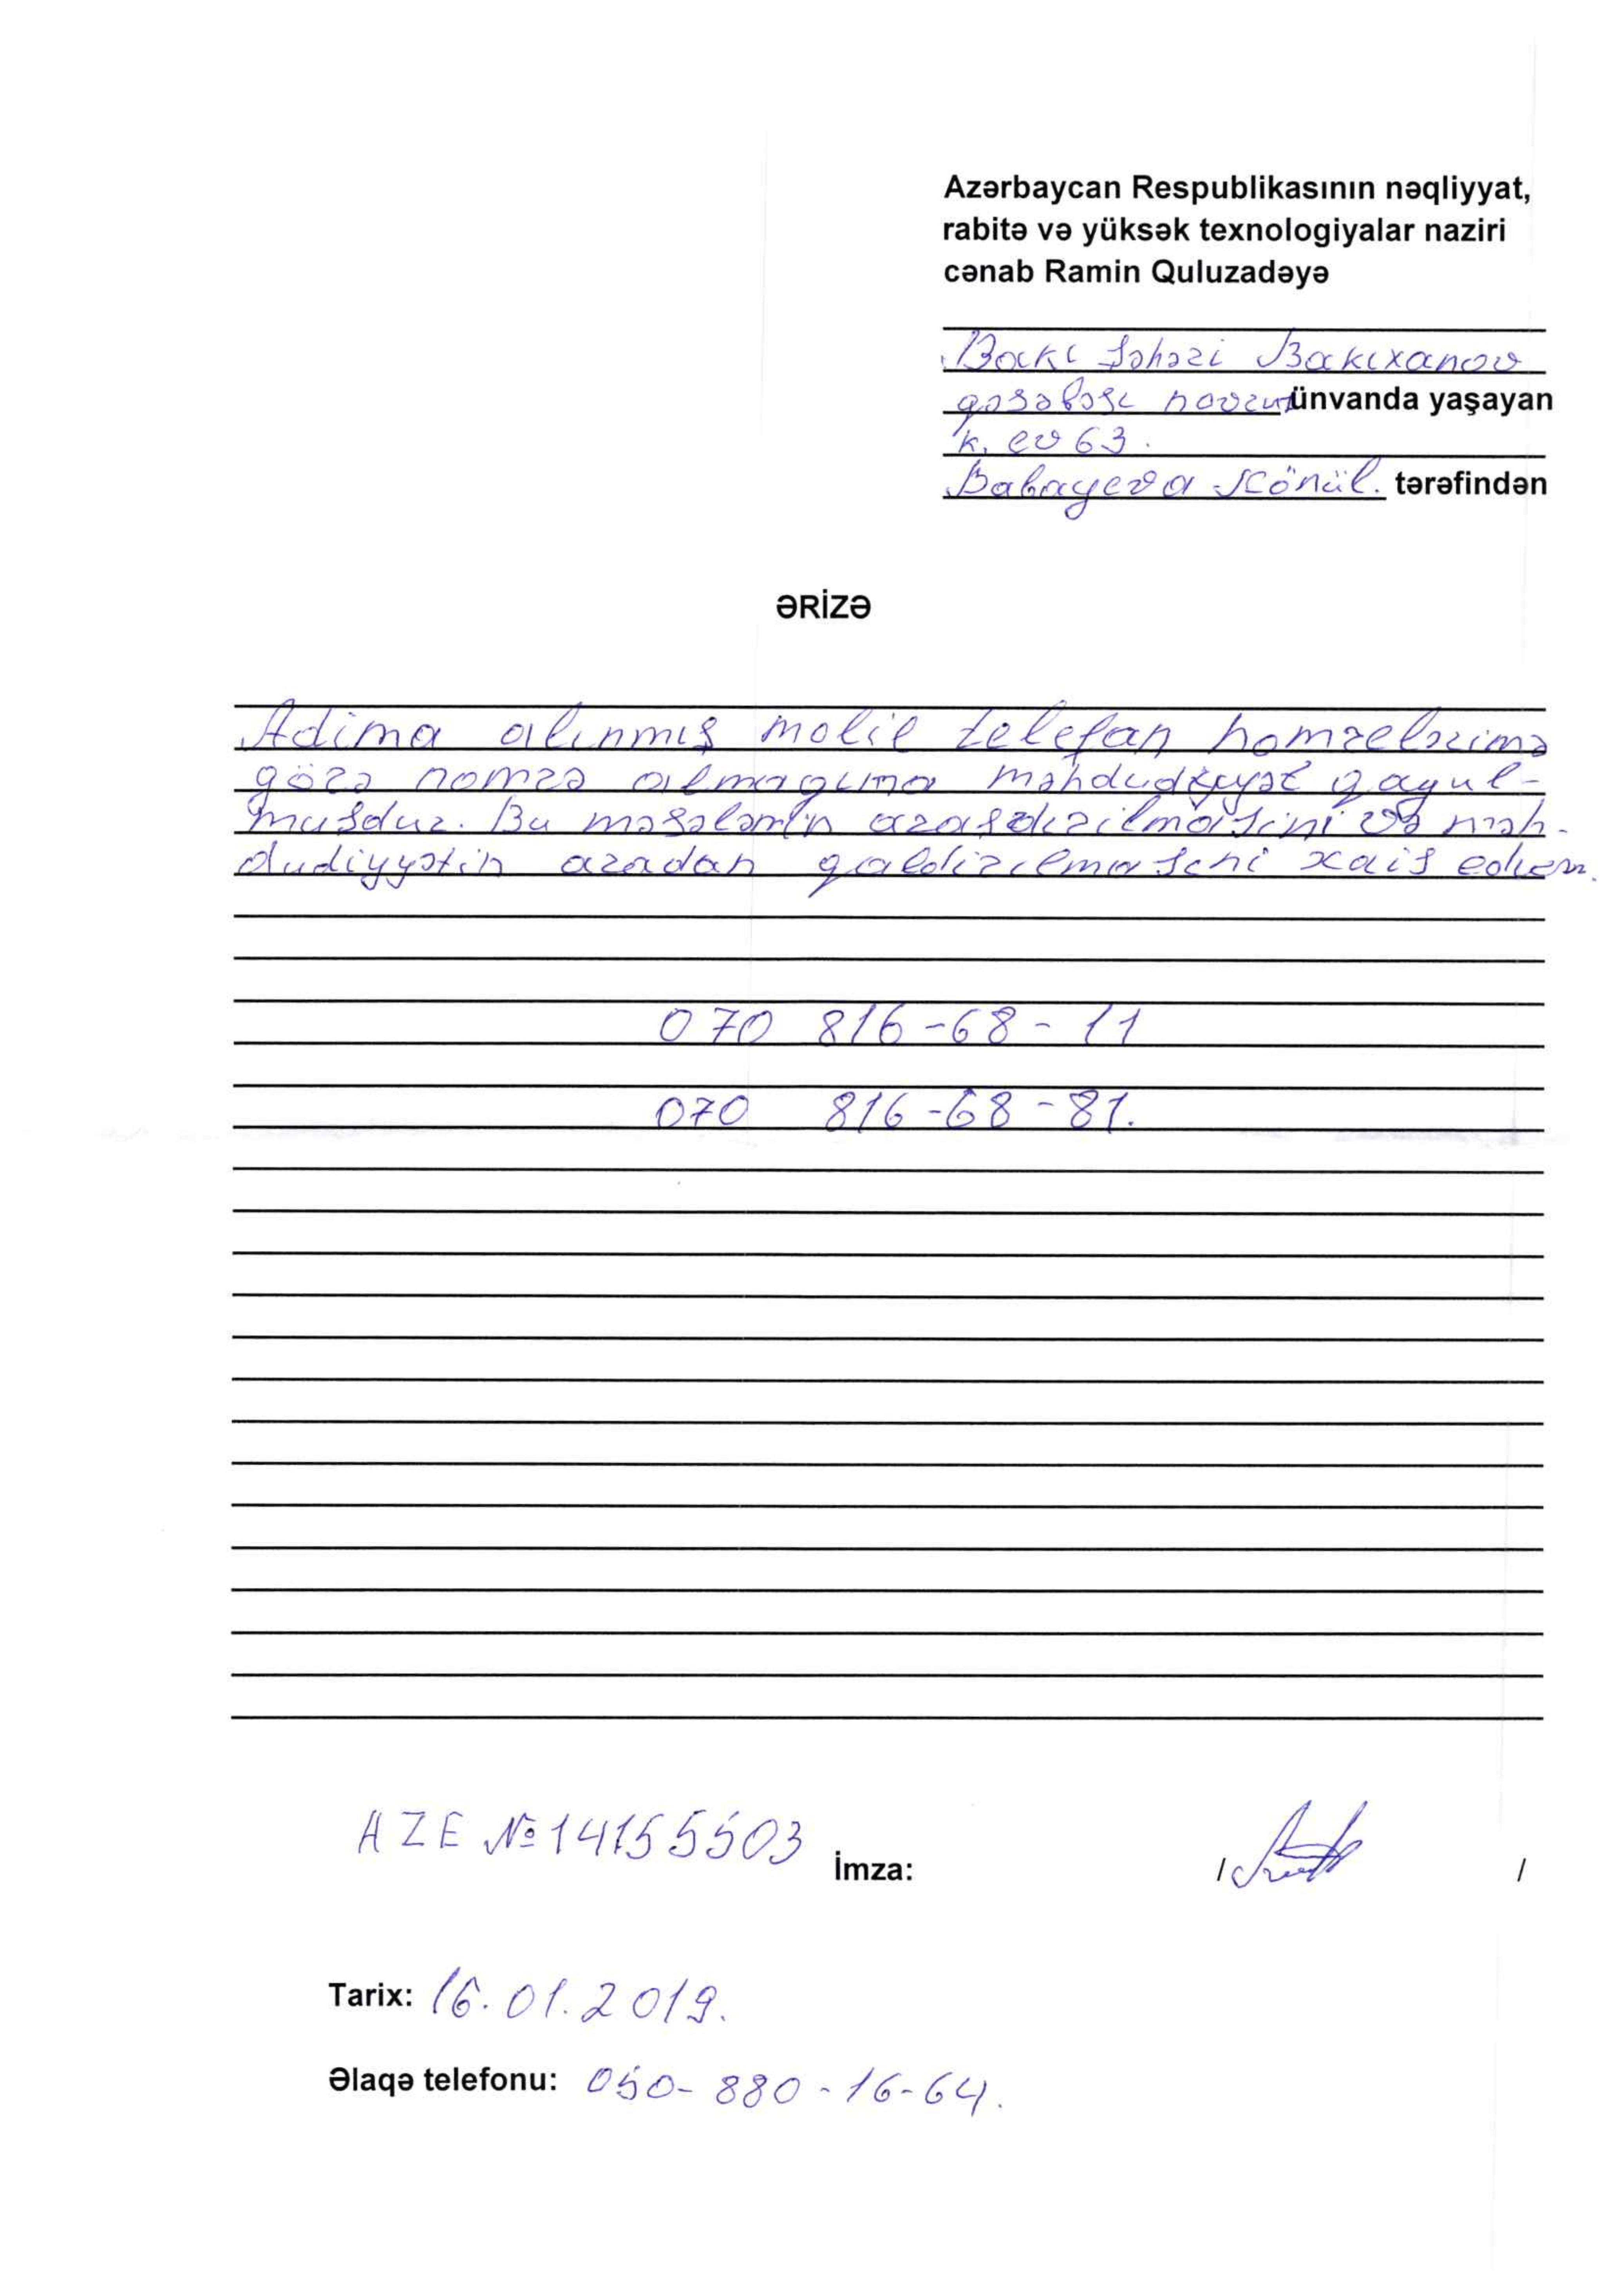 Azərbaycan Respublikasının nəqliyyat,
rabitə və yüksək texnologiyalar naziri
cənab Ramin Quluzadəyə
Bakı şəhəri Bakıxanov
qəsəbəsi ünvanda yaşayan
k. ev 63.
Babayeva Könül. tərəfindən
ƏRİZƏ
Adıma alınmış mobil telefon nomrelərimə
görə nomrə almağıma məhdudiyyət qoyul-
muşdur. Bu məsələnin araşdırılmasını və məh-
dudiyyətin aradan qaldırılmasını xaiş edirəm.
070 816-68-11
070 816-68-81.
AZE №14155503
İmza: / /
Tarix: 16.01.2019.
Əlaqə telefonu: 050-880-16-64.